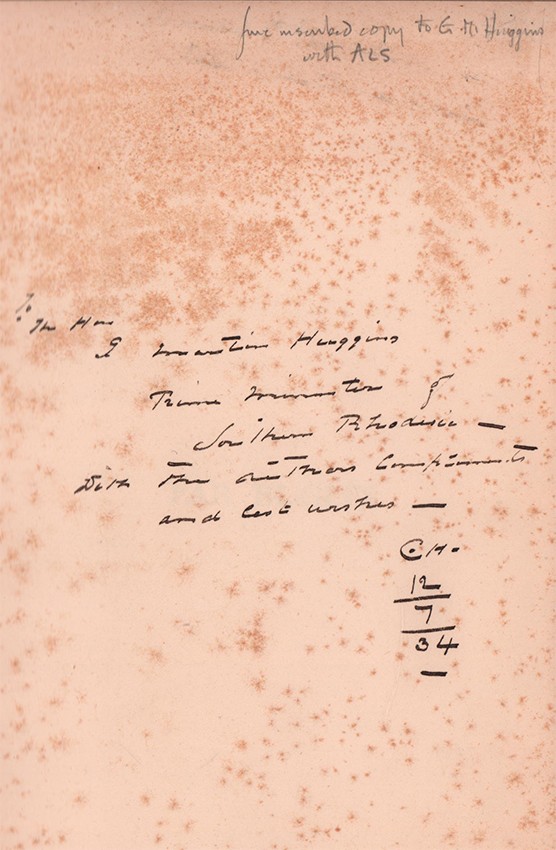 fine inscribed copy to G. M. Huggins
with ALS
To
The Hon
G Martin Huggins
Prime Minister of
Southern Rhodesia —
With the authors Compliments
and best wishes —
C. H.
12
7
34